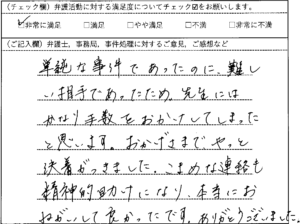 (チェック欄) 弁護活動に対する満足度についてチェック☑をお願いします。
☑非常に満足 □満足 □やや満足 □不満 □非常に不満
(ご記入欄) 弁護士，事務局，事件処理に対するご意見，ご感想など
単純な事件であったのに、難し
い相手であったため、先生には
かなり手数をおかけしてしまった
と思います。おかげさまでやっと
決着がつきました。こまめな連絡も
精神的助けになり、本当にお
ねがいして良かったです。ありがとうございました。